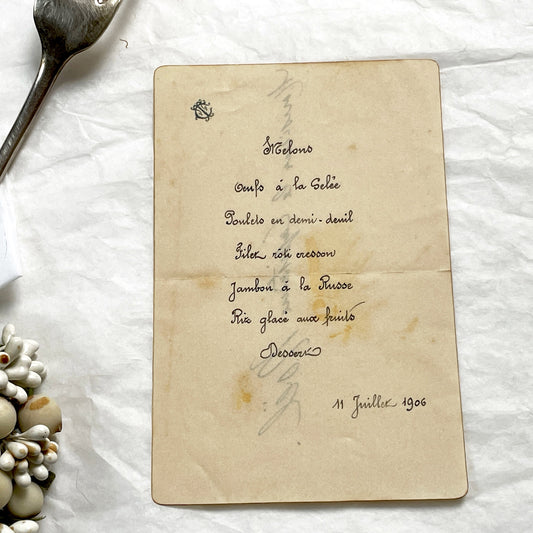 Melons
Oeufs à la Gelée
Poulets en demi-deuil
Filet rôti cresson
Jambon à la Russe
Riz glacé aux fruits
Dessert
11 Juillet 1906